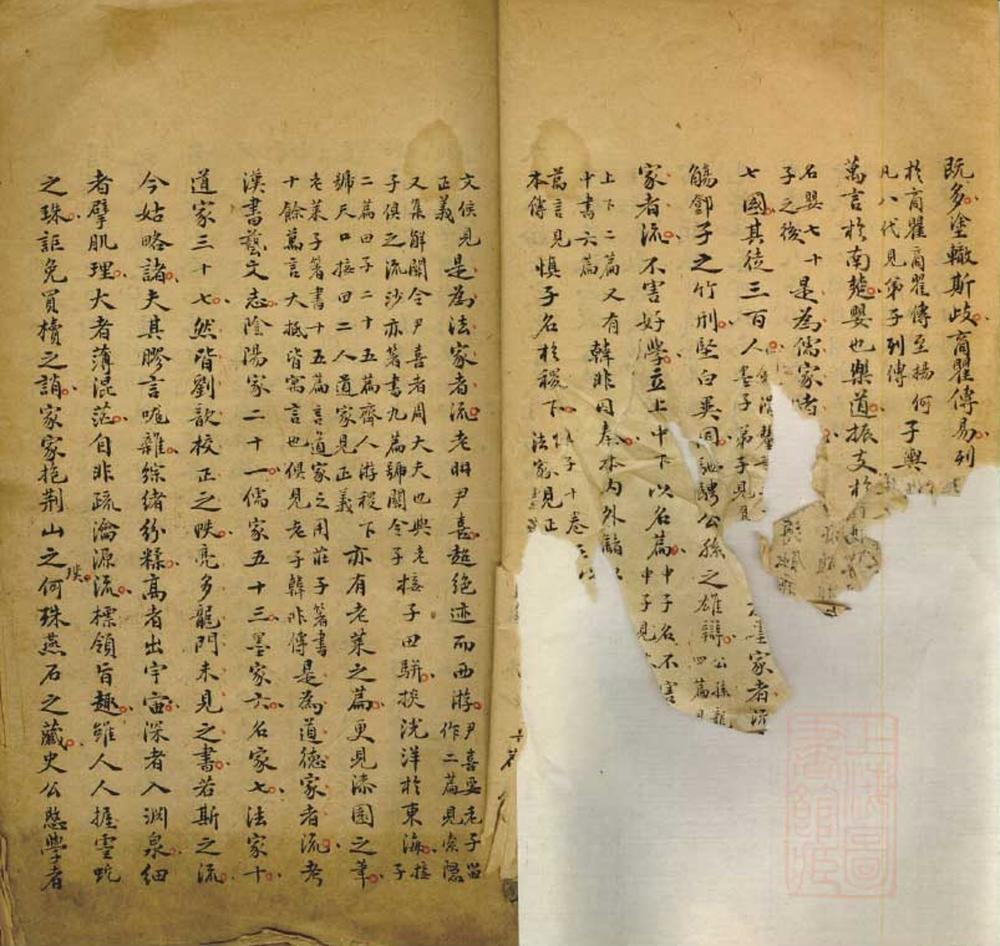 既多塗轍斯歧商瞿傳易列
於商瞿商瞿傳至楊何
凡八代見弟子列傳
子輿
萬言於南楚嬰也樂道振支於
名嬰七十
子之後
是為儒家者
七國其徒三百人
墨子弟子見
墨家者流
觴鄧子之竹刑堅白異同馳騁公孫之雄辯
公孫龍
四篇見
家者流不害好學立上中下以名篇
中子名不害
中子見
上下二篇又有
中書六篇
韓非囚秦本內外儲以
萬言見
本傳
慎子名於稷下
慎子十卷
法家見正
文侯見
正義
是為法家者流老耼尹喜超絕迹而西游
尹喜要老子留
作二篇見索隱
又集解關令尹喜者周大夫也與老
子俱之流沙亦著書九篇號關令子
接子田駢揆洸洋於東海
接子
二篇田子二十五篇齊人游稷下
號天口接田二人道家見正義
亦有老萊之篇更見漆園之筆
老萊子著書十五篇言道家之用莊子著書
十餘萬言大抵皆寓言也俱見老子韓非傳
是為道德家者流考
漢書藝文志陰陽家二十一儒家五十三墨家六名家七法家十
道家三十七然皆劉歆校正之帙亮多龍門未見之書若斯之流
今姑略諸夫其膠言呃雜綜緒紛糅高者出宇宙深者入淵泉細
者擘肌理大者薄混茫自非疏瀹源流標領旨趣雖人人握靈蛇
之珠詎免買櫝之誚家家抱荊山之璞何殊燕石之藏史公愍學者